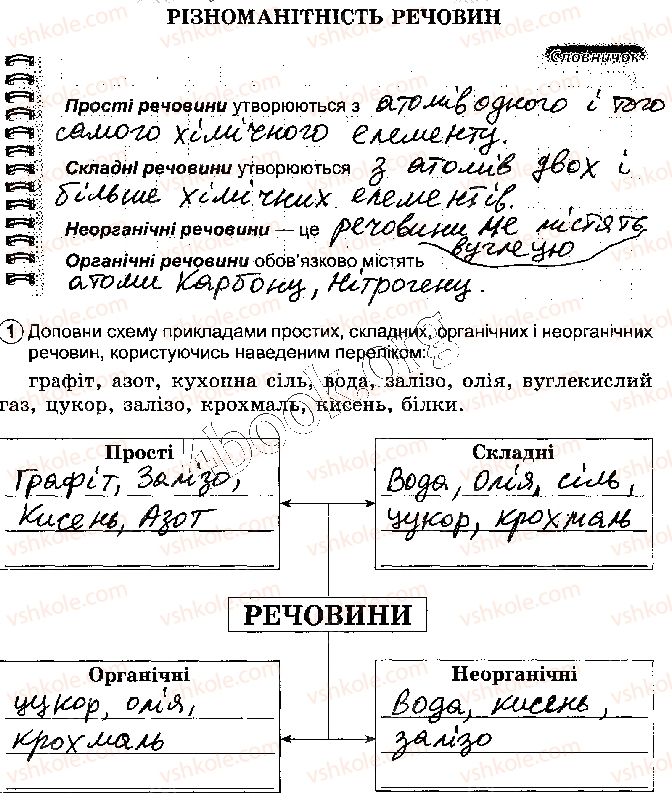 РІЗНОМАНІТНІСТЬ РЕЧОВИН
Словничок
Прості речовини утворюються з атомів одного і того
самого хімічного елементу.
Складні речовини утворюються з атомів двох і
більше хімічних елементів.
Неорганічні речовини — це речовини не містять
вуглецю
Органічні речовини обов'язково містять
атоми Карбону, Нітрогену.
1 Доповни схему прикладами простих, складних, органічних і неорганічних
речовин, користуючись наведеним переліком:
графіт, азот, кухонна сіль, вода, залізо, олія, вуглекислий
газ, цукор, залізо, крохмаль, кисень, білки.
Прості
Графіт, Залізо,
Кисень, Азот
Складні
Вода, Олія, сіль,
цукор, крохмаль
РЕЧОВИНИ
Органічні
цукор, олія,
крохмаль
Неорганічні
Вода, кисень,
залізо
4book.org
vshkole.com